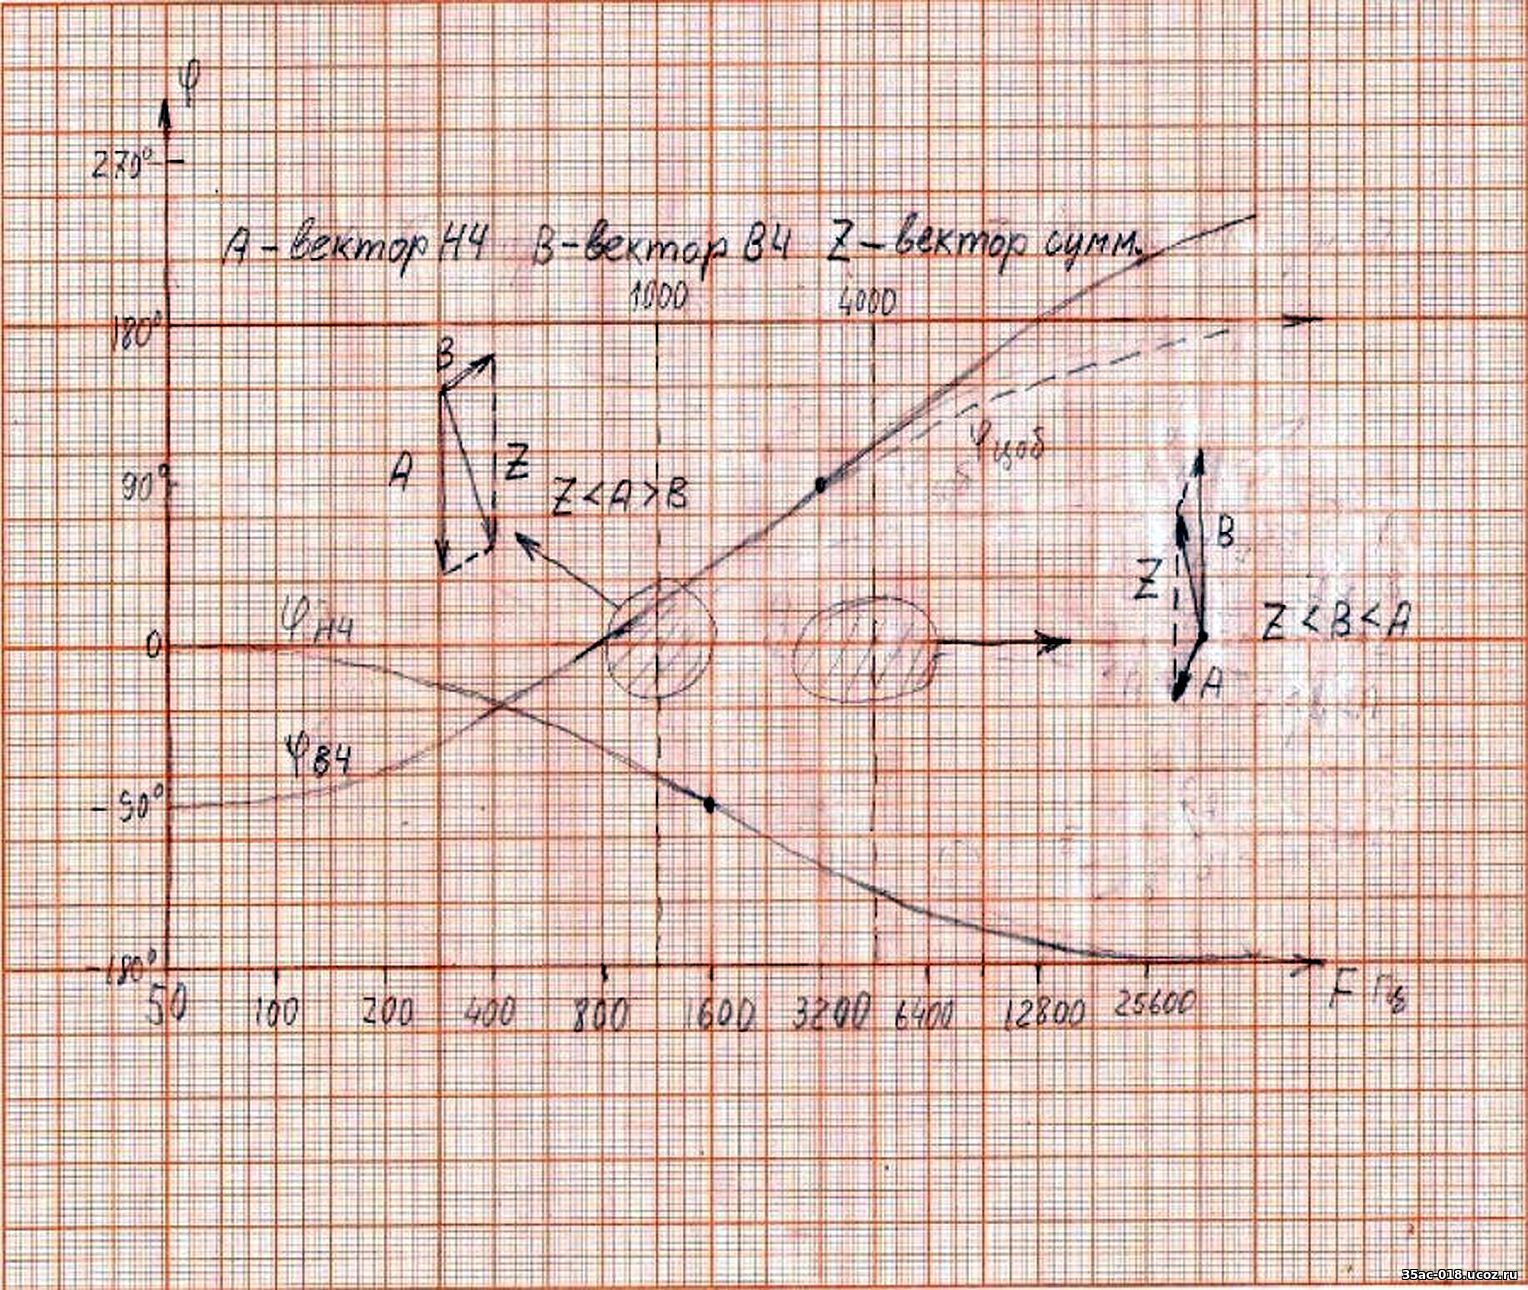 φ
270°
А – вектор НЧ В – вектор ВЧ Z – вектор сумм.
1000 4000
180°
B
A
Z
90°
Z < A > B
φцоб
B
Z
Z < B < A
A
φНЧ
0
φВЧ
-90°
-180°
50 100 200 400 800 1600 3200 6400 12800 25600 F Гц
35ac-018.ucoz.ru